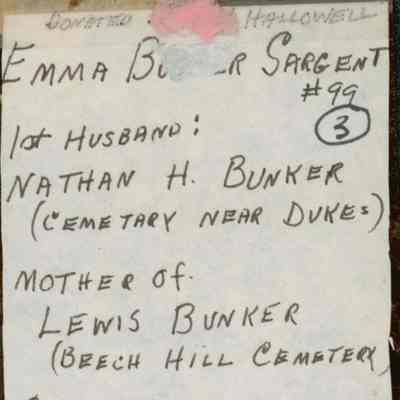 DONATED HALLOWELL
EMMA SARGENT
#99
1st HUSBAND: 3
NATHAN H. BUNKER
(CEMETARY NEAR DUKES)
MOTHER of.
LEWIS BUNKER
(BEECH HILL CEMETERY